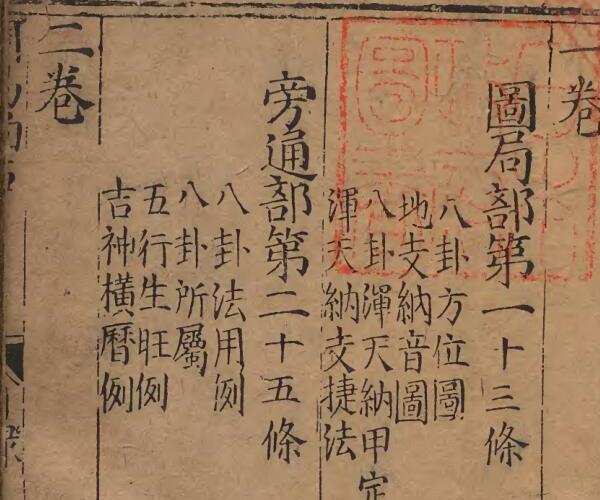 一卷
圖局部第一十三條
八卦方位圖
地支納音圖
八卦渾天納甲定
渾天納支捷法
旁通部第二十五條
八卦法用例
八卦所屬
五行生旺例
吉神橫曆例
二卷